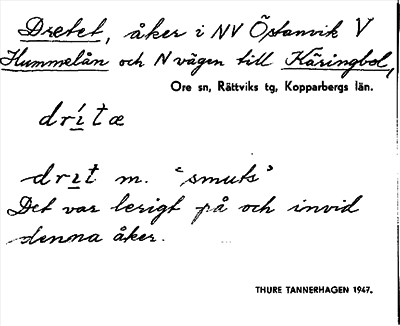 Dretet, åker i NV Östanvik V
Hummelån och N vägen till Käringbol,
Ore sn, Rättviks tg, Kopparbergs län.
drı́tæ
drıt m. "smuts"
Det var lerigt på och invid
denna åker.
THURE TANNERHAGEN 1947.